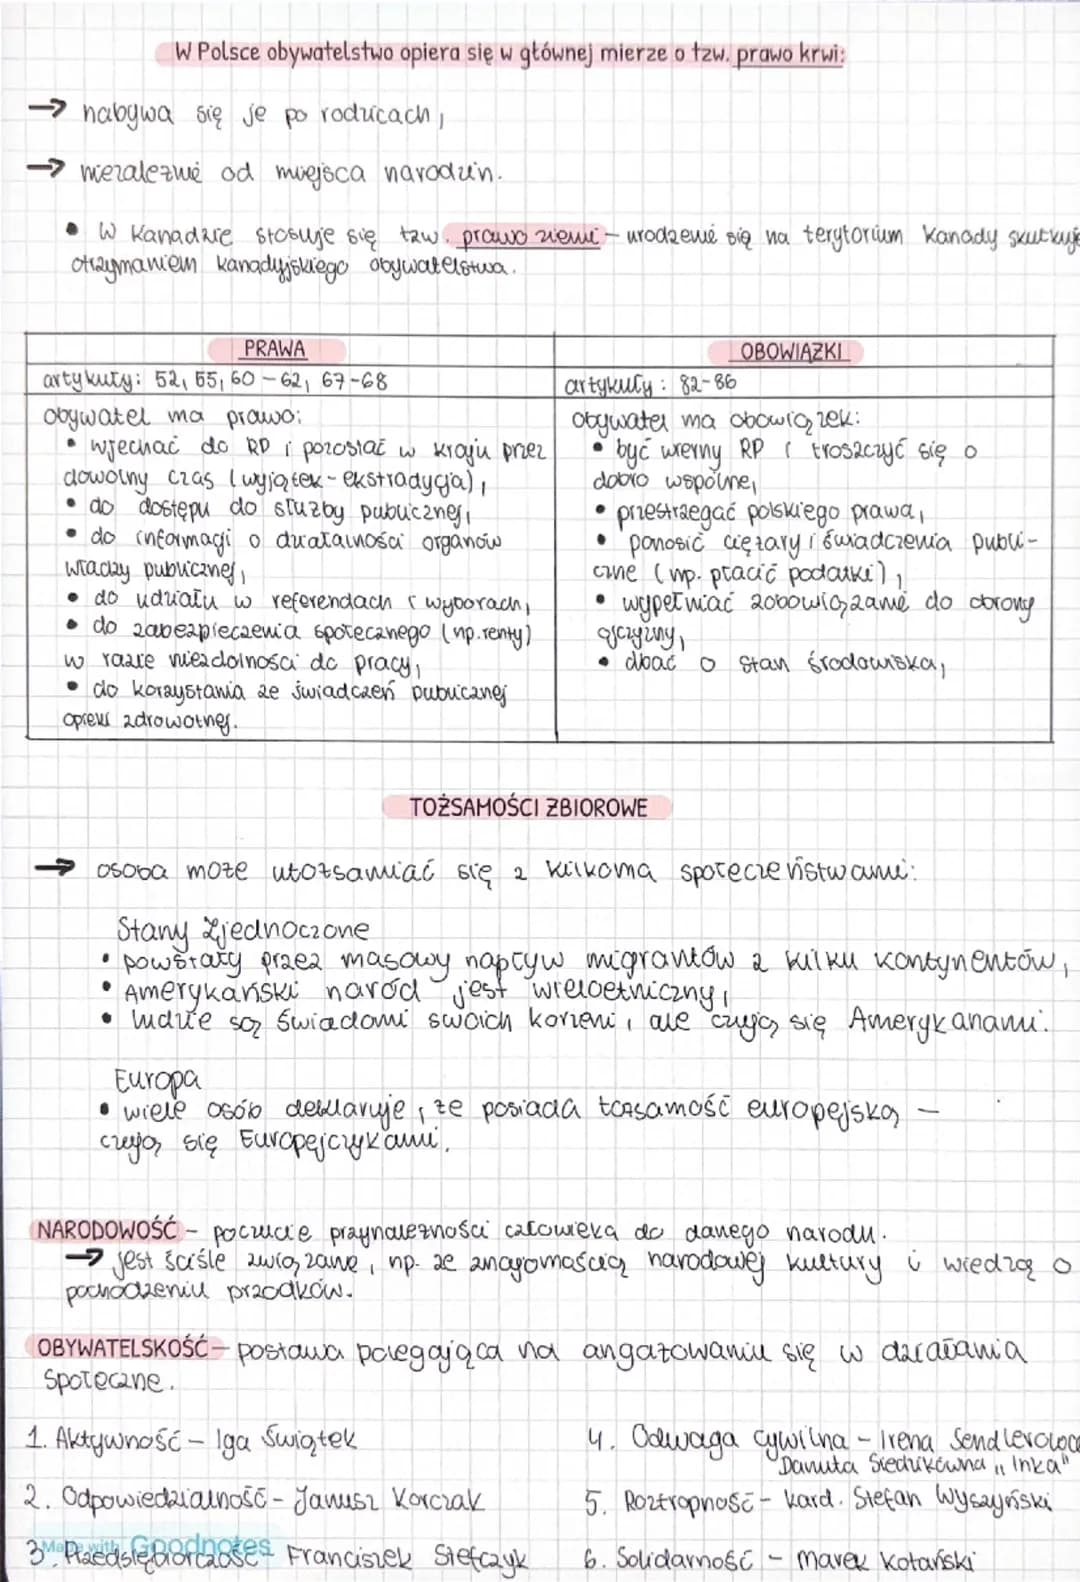 W Polsce obywatelstwo opiera się w głównej mierze o tzw. prawo krwi:
→ nabywa się je po rodzicach,
→ niezależnie od miejsca narodzin.
• W Kanadzie stosuje się tzw. prawo ziemi - urodzenie się na terytorium Kanady skutkuje
otrzymaniem kanadyjskiego obywatelstwa.
PRAWA
artykuły: 52, 55, 60-62, 67-68
obywatel ma prawo:
• wjechać do RP i pozostać w kraju przez
dowolny czas (wyjątek - ekstradycja),
• do dostępu do służby publicznej,
• do informacji o działalności organów
władzy publicznej,
• do udziału w referendach i wyborach,
• do zabezpieczenia społecznego (np. renty)
w razie niezdolności do pracy,
• do korzystania ze świadczeń publicznej
opieki zdrowotnej.
OBOWIĄZKI
artykuły: 82-86
obywatel ma obowiązek:
• być wierny RP i troszczyć się o
dobro wspólne,
• przestrzegać polskiego prawa,
• ponosić ciężary i świadczenia publi-
czne (np. płacić podatki),
• wypełniać zobowiązanie do obrony
ojczyzny,
• dbać o stan środowiska,
TOŻSAMOŚCI ZBIOROWE
→ osoba może utożsamiać się z kilkoma społeczeństwami:
Stany Zjednoczone
• powstały przez masowy napływ migrantów z kilku kontynentów,
• Amerykański naród jest wieloetniczny,
• ludzie są świadomi swoich korzeni, ale czują się Amerykanami.
Europa
• wiele osób deklaruje, że posiada tożsamość europejską -
czują się Europejczykami.
NARODOWOŚĆ - poczucie przynależności człowieka do danego narodu.
→ jest ściśle związane, np. ze znajomością narodowej kultury i wiedzą o
pochodzeniu przodków.
OBYWATELSKOŚĆ - postawa polegająca na angażowaniu się w działania
społeczne.
1. Aktywność - Iga Świątek
2. Odpowiedzialność - Janusz Korczak
3. Przedsiębiorczość - Franciszek Stefczyk
Made with Goodnotes
4. Odwaga cywilna - Irena Sendlerowa
Danuta Siedzikówna "Inka"
5. Roztropność - kard. Stefan Wyszyński
6. Solidarność - Marek Kotański